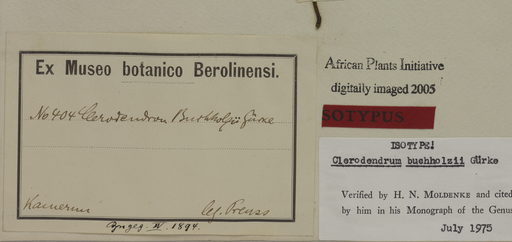 Ex Museo botanico Berolinensi.
No 404 Clerodendron Buchholzii Gürke
Kamerun
leg. Preuss
1894.
African Plants Initiative
digitally imaged 2005
SOTYPUS
ISOTYPE!
Clerodendrum buchholzii Gürke
Verified by H. N. MOLDENKE and cited
by him in his Monograph of the Genus
July 1975